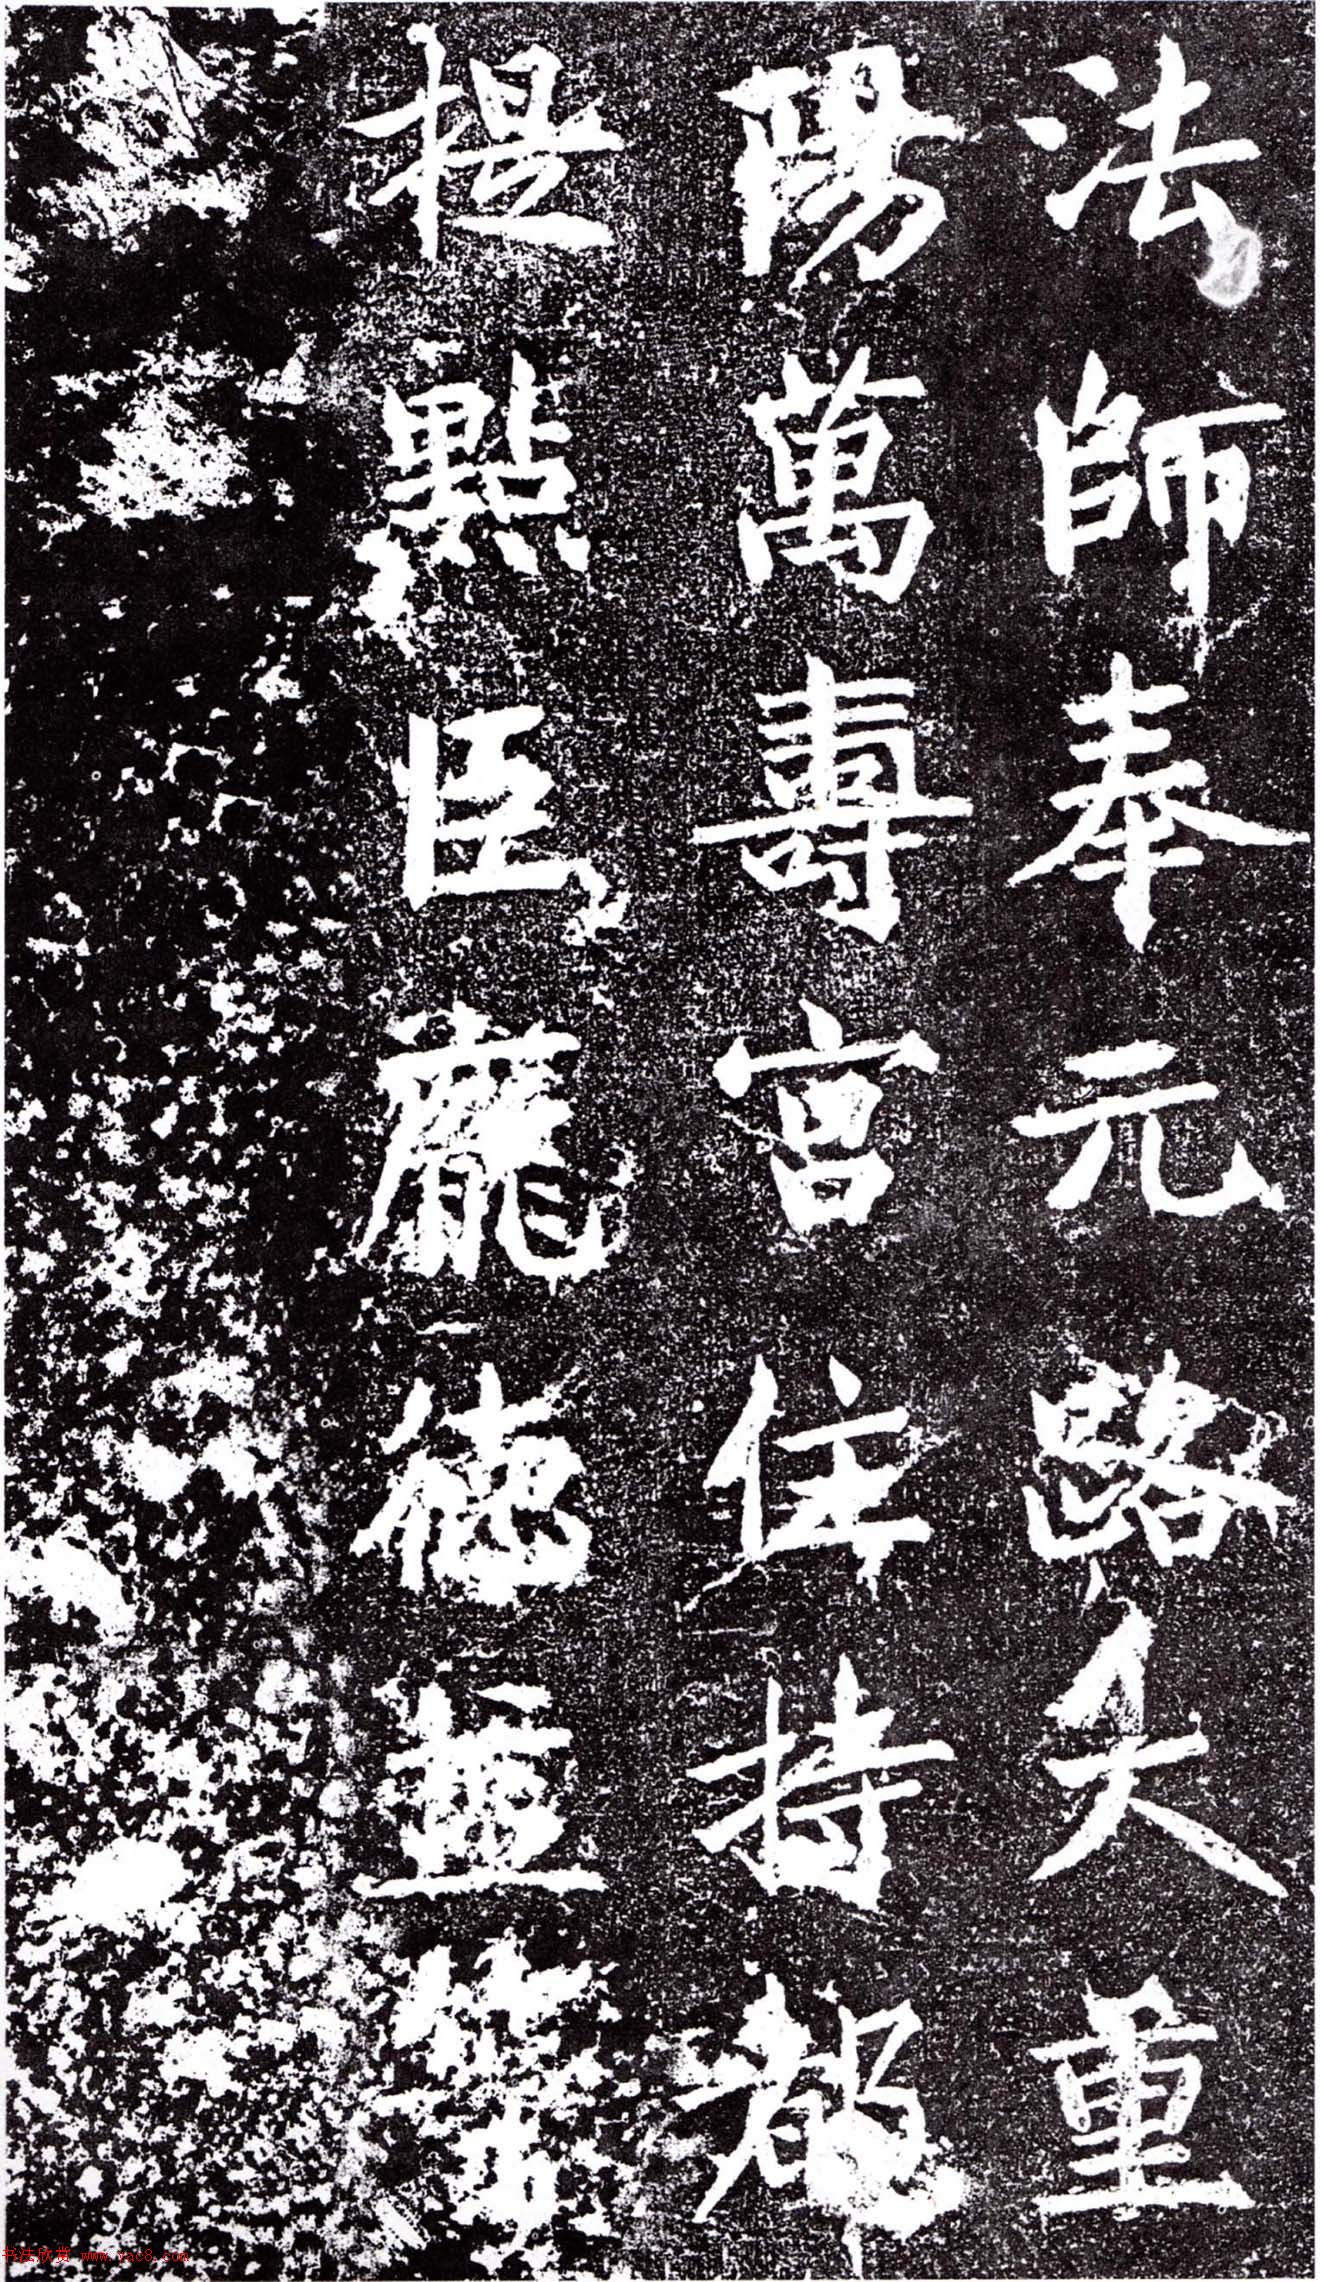 法師奉元路大重
陽萬壽宮住持都
提點臣龐德益
书法欣赏 www.yac8.com